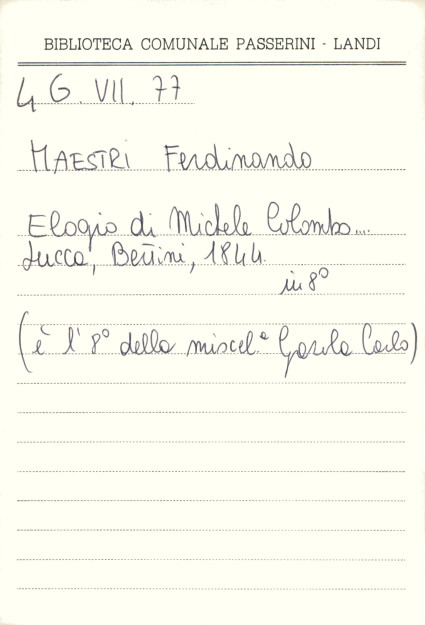 BIBLIOTECA COMUNALE PASSERINI - LANDI
4 G. VII. 77
MAESTRI Ferdinando
Elogio di Michele Colombo...
Lucca, Bertini, 1844.
in 8°
(è l'8° della miscel.ª Carlo)